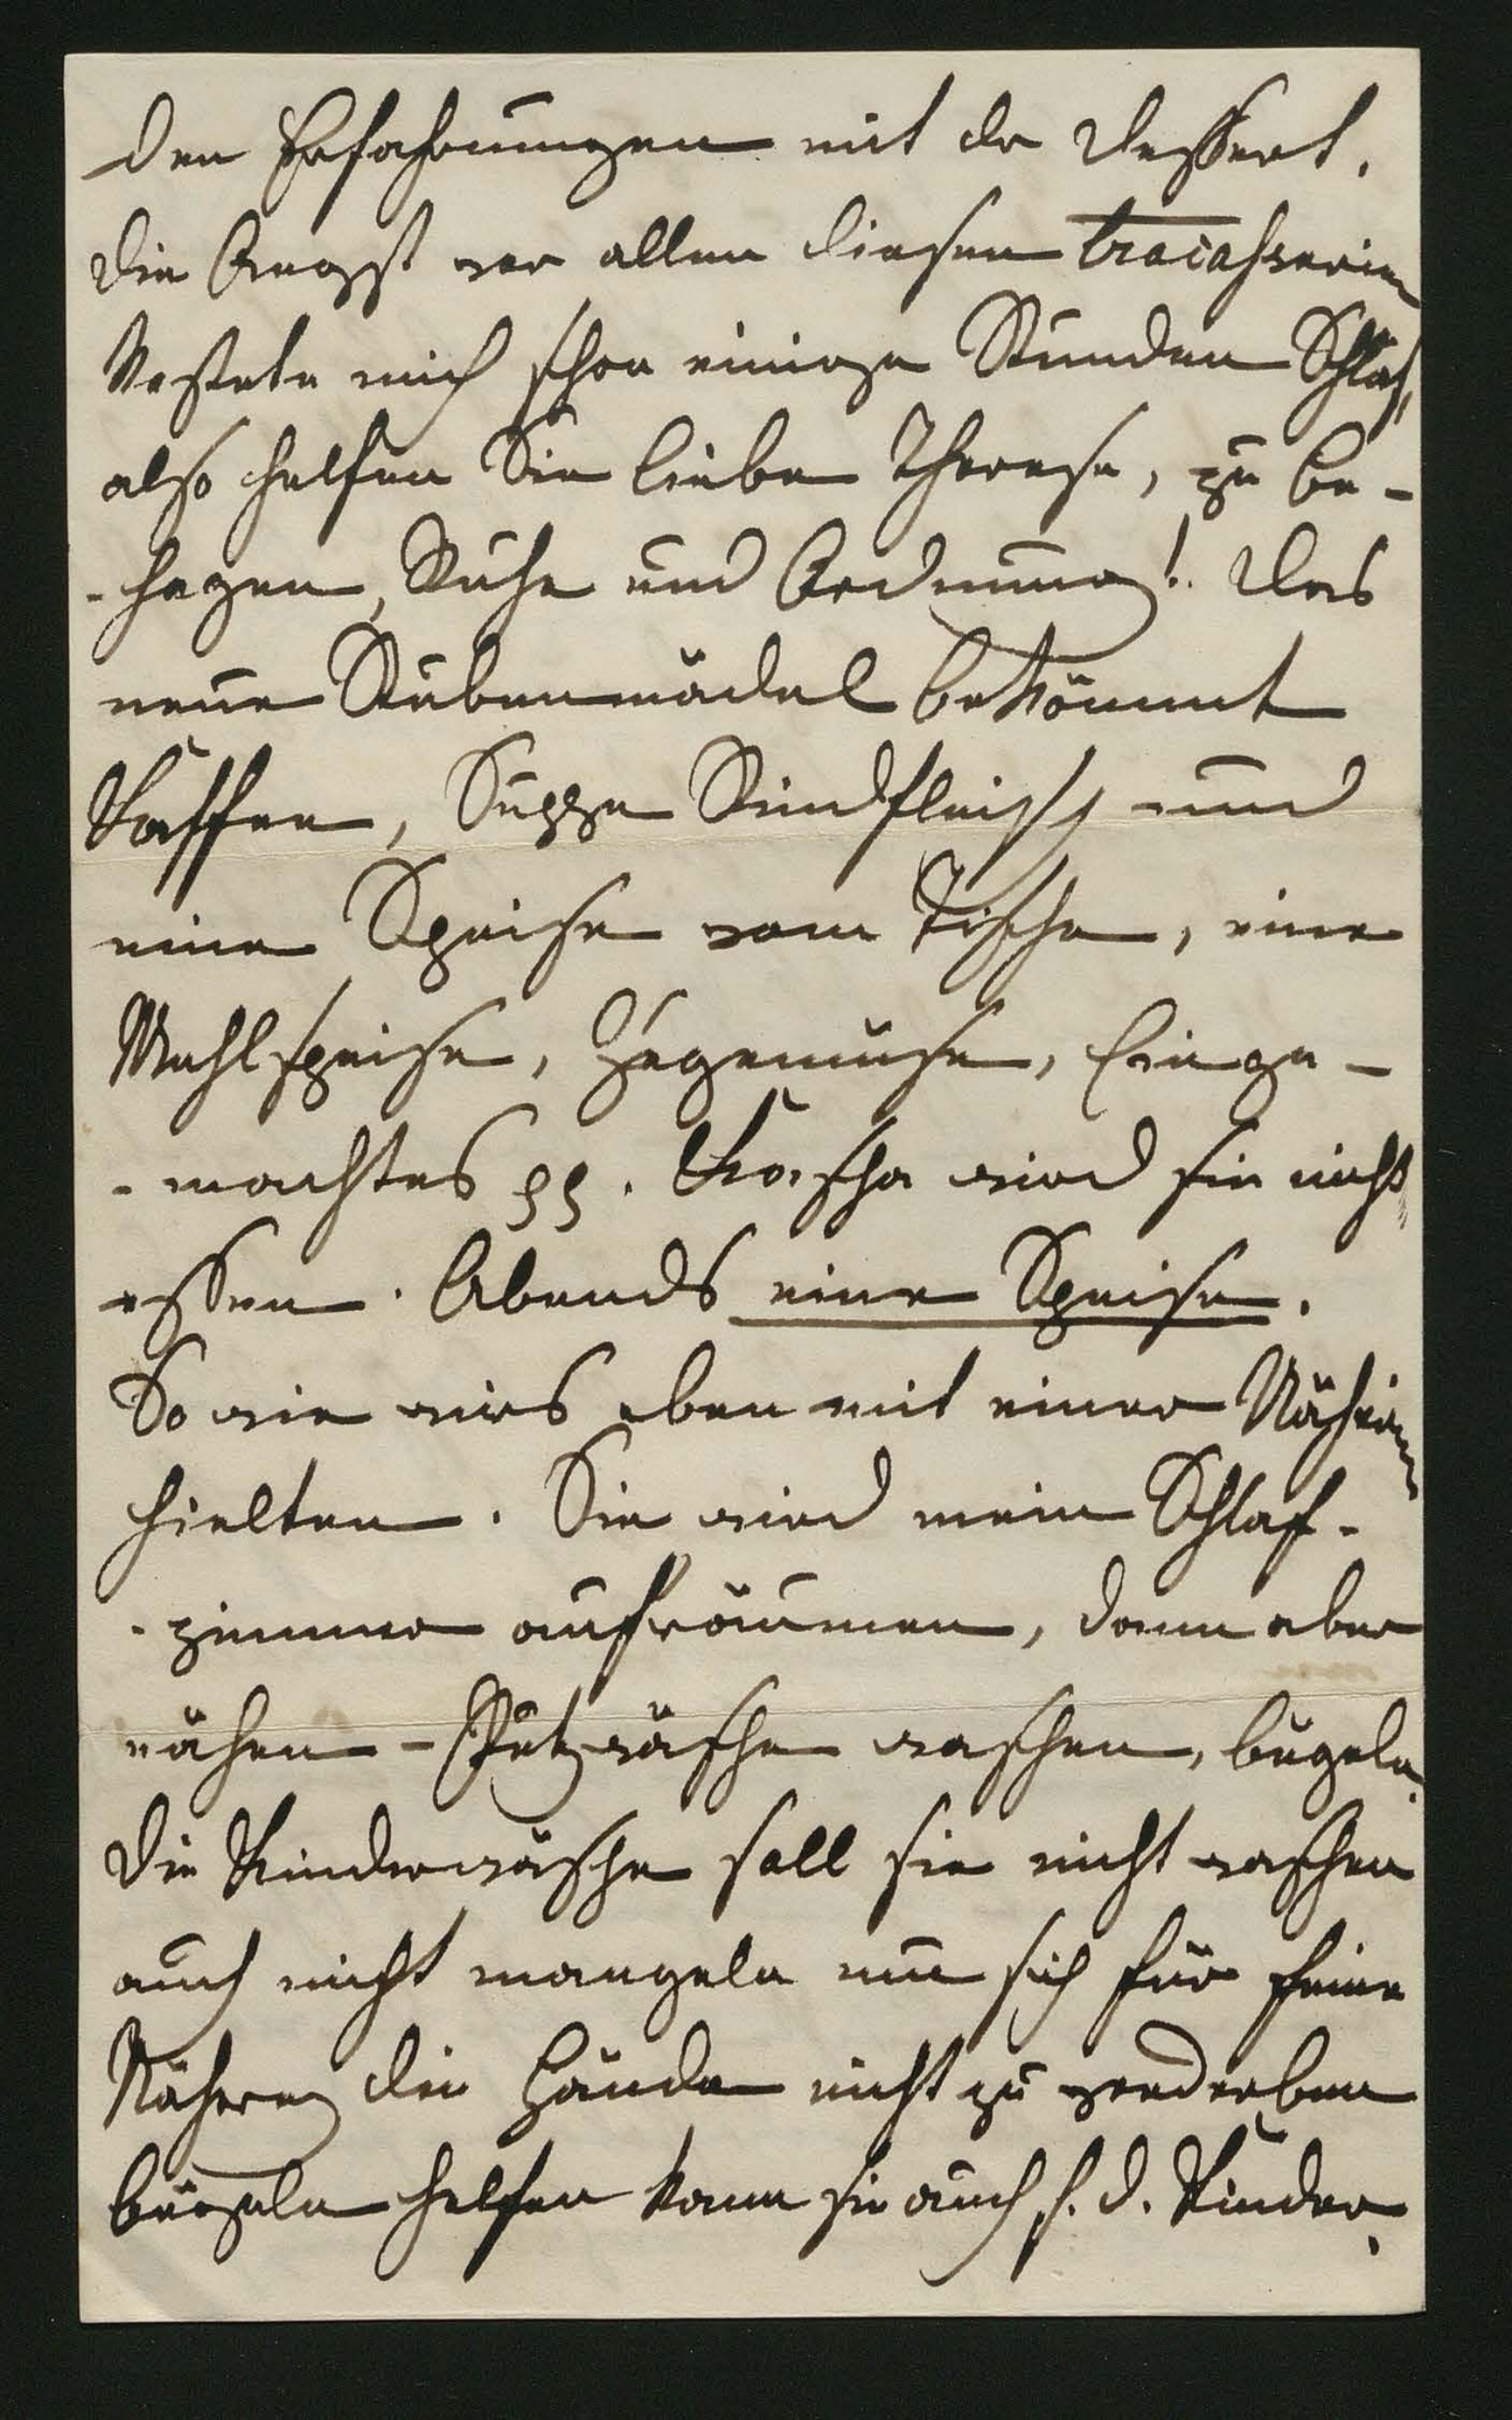 den Erfahrungen mit der Dessert.
Die Angst vor allen diesen Tracasserien
kostete mich schon einige Stunden Schlaf,
also helfen Sie liebe Therese, zu Be-
-hagen, Ruhe und Ordnung! Das
neue Stubenmädel bekömmt
Kaffee, Suppe Rindfleisch und
eine Speise vom Tische, eine
Mehlspeise, Zugemüse, Einge-
-machtes pp. wird sie nicht
essen. Abends eine Speise.
So wie wirs eben mit einer Näherin
hielten. Sie wird mein Schlaf-
-zimmer aufräumen, dann aber
nähen - Putzwäsche waschen, bügeln.
Die Kinderwäsche soll sie nicht waschen
auch nicht mangeln um sich für feine
Näherey die Hände nicht zu verderben
bügeln helfen kann sie auch f. d. Kinder.